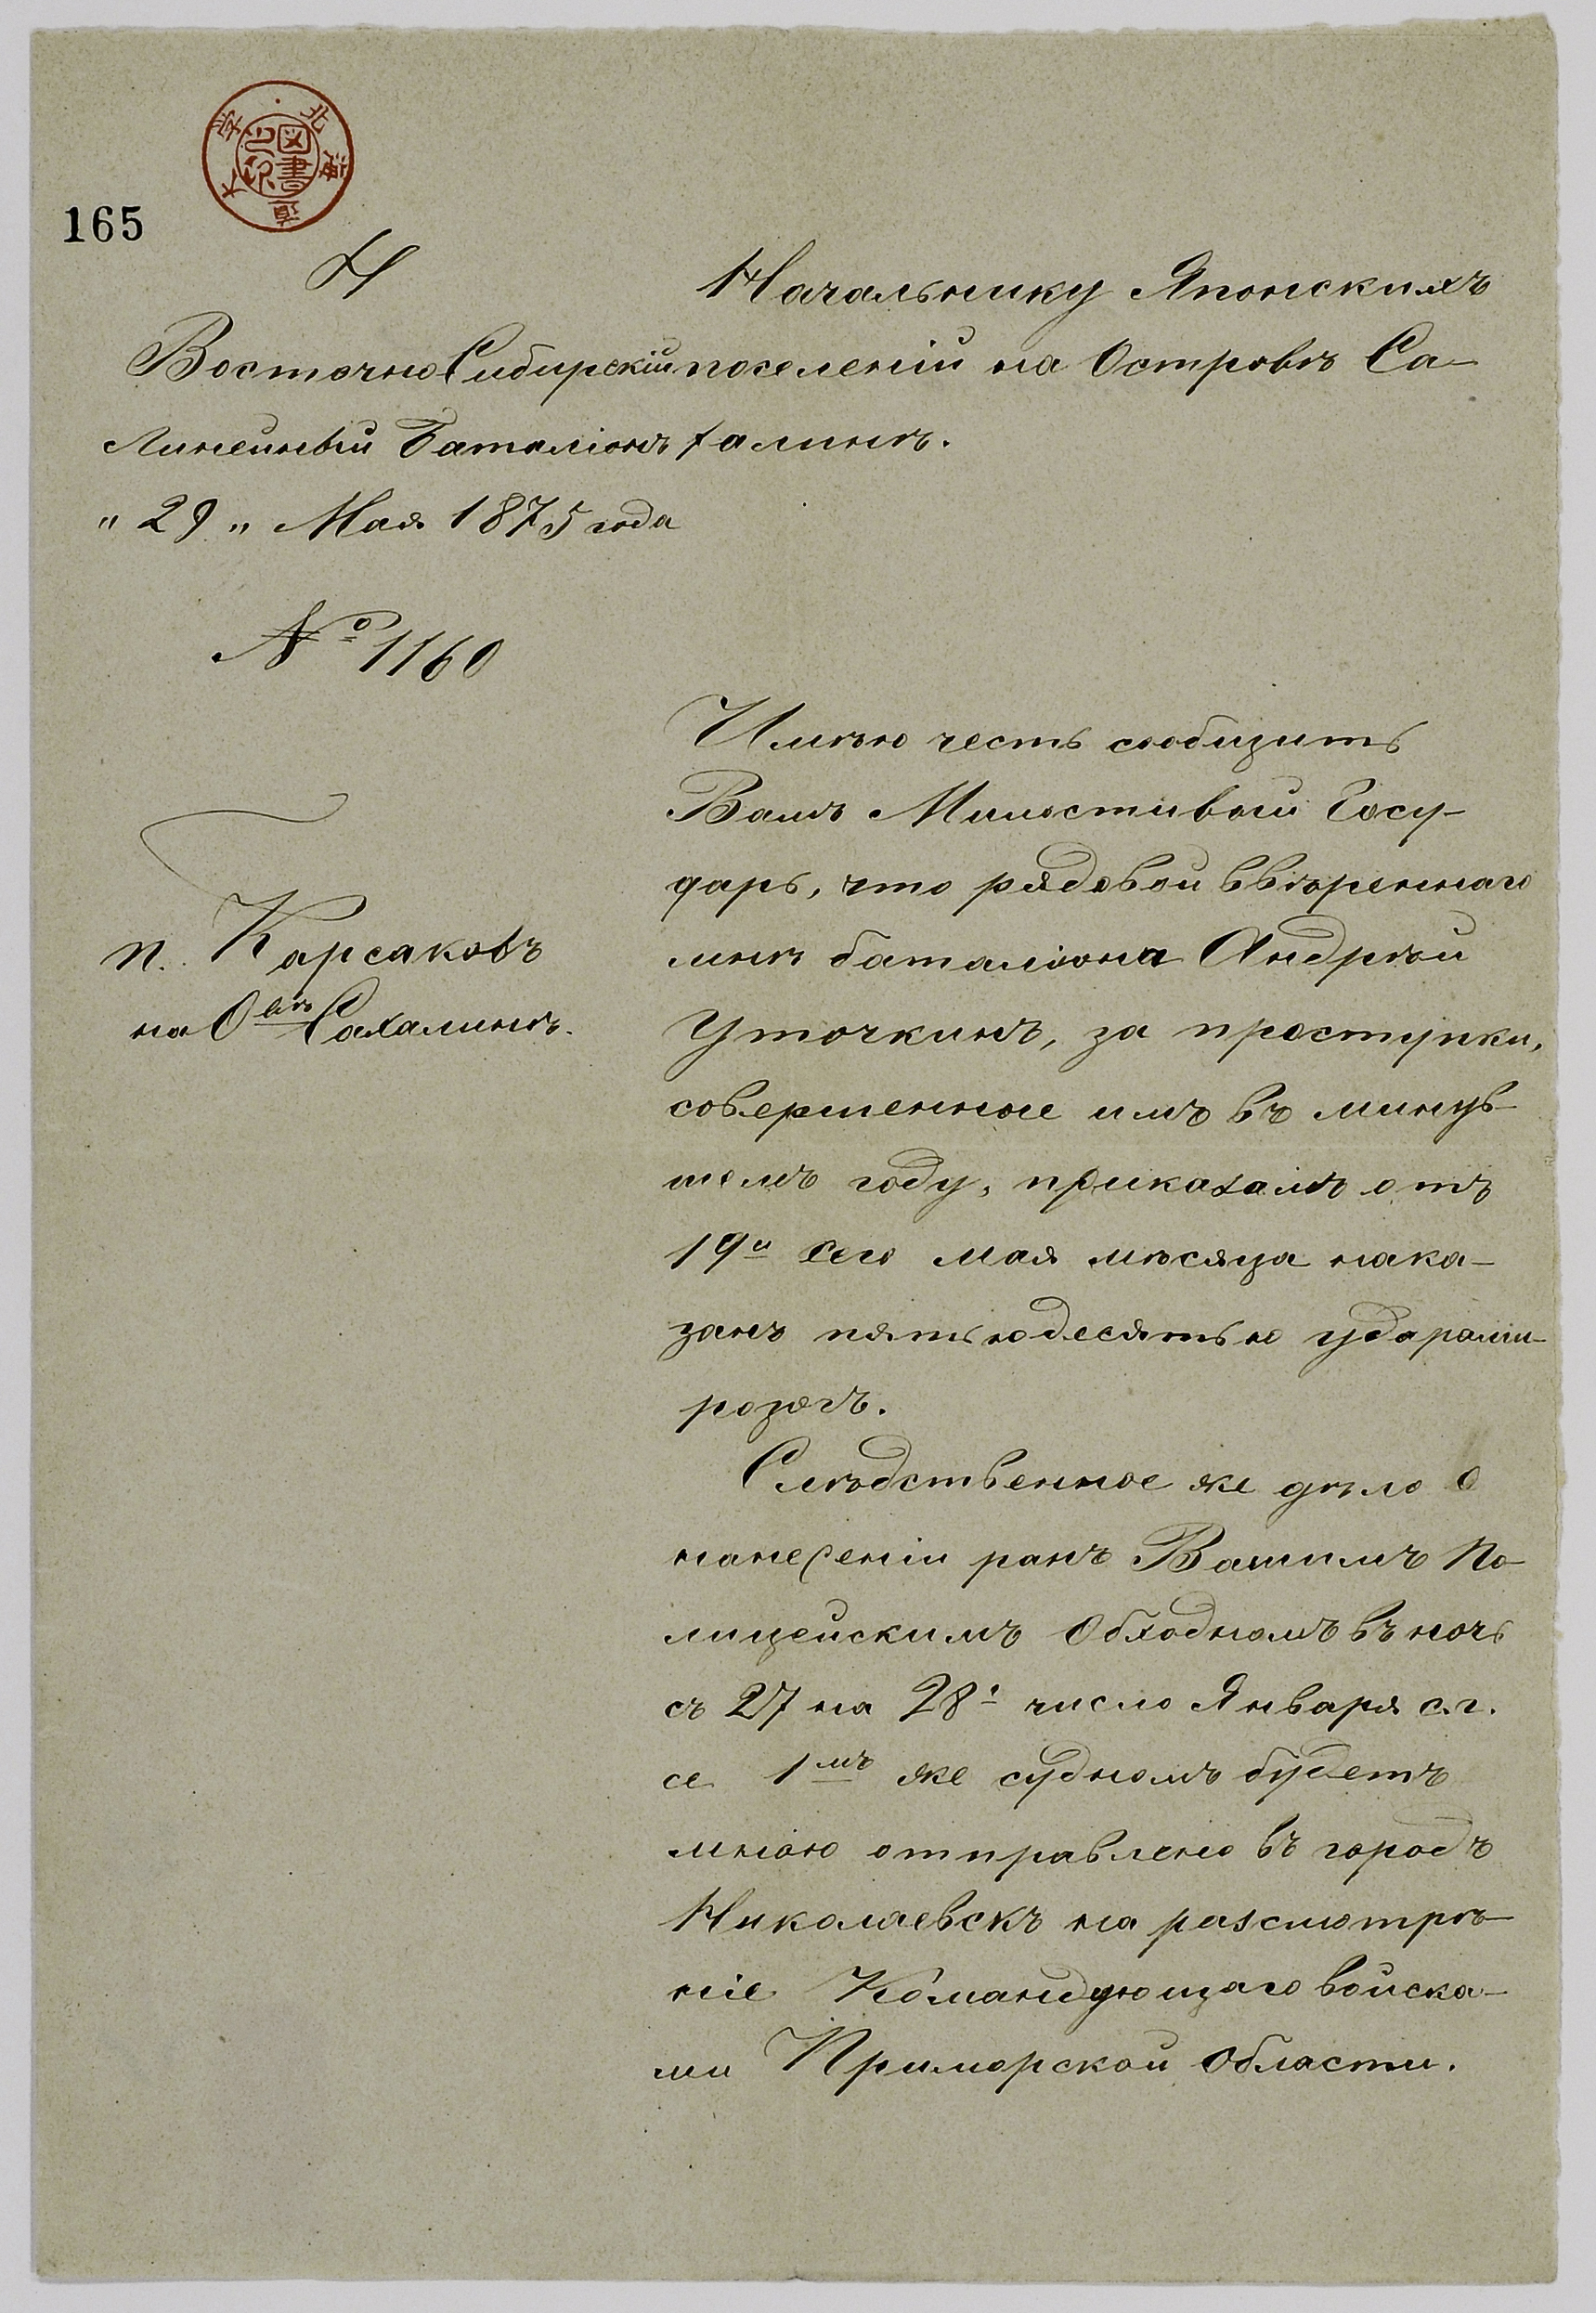 165
北海道大学
図書之印
4
Восточно Сибирскій
Линейный Баталіонъ
„29„ Мая 1875 года
№ 1160
п. Карсаковъ
на О-вѣ Сахалинѣ.
Начальнику Японскихъ
поселеній на Островѣ Са-
халинѣ.
Имѣю честь сообщить
Вамъ Милостивый Госу-
дарь, что рядовой ввѣреннаго
мнѣ баталіона Андрѣй
Уточкинъ, за проступки,
совершенные имъ въ минув-
шемъ году, приказомъ отъ
19го сего мая мѣсяца нака-
занъ пятьюдесятью ударами
розогъ.
Слѣдственное же дѣло о
нанесеніи ранъ Вашимъ По-
лицейскимъ Обходномъ въ ночь
съ 27 на 28е число Января с.г.
се 1мъ же судномъ будетъ
мною отправлено въ городъ
Николаевскъ на разсмотрѣ-
ніе Командующаго войска-
ми Приморской Области.